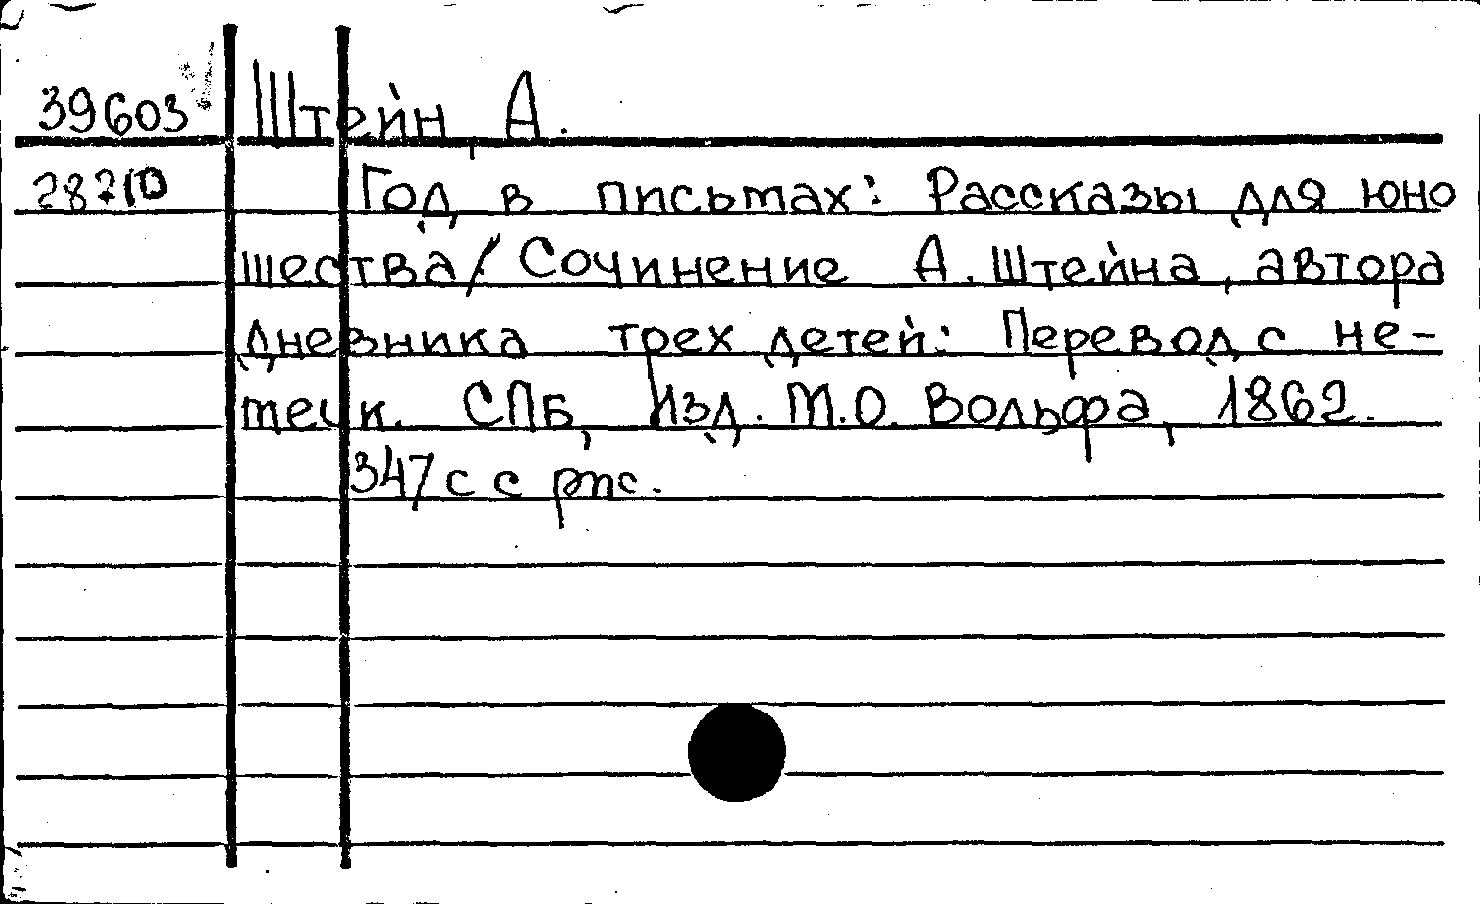 39603 Штейн, А.
28210 Год в письмах: Рассказы для юно
шества/ Сочинение А. Штейна, автора
дневника трех детей: Перевод с не-
мецк. СПБ, Изд. М.О. Вольфа, 1862.
347 с с рис.